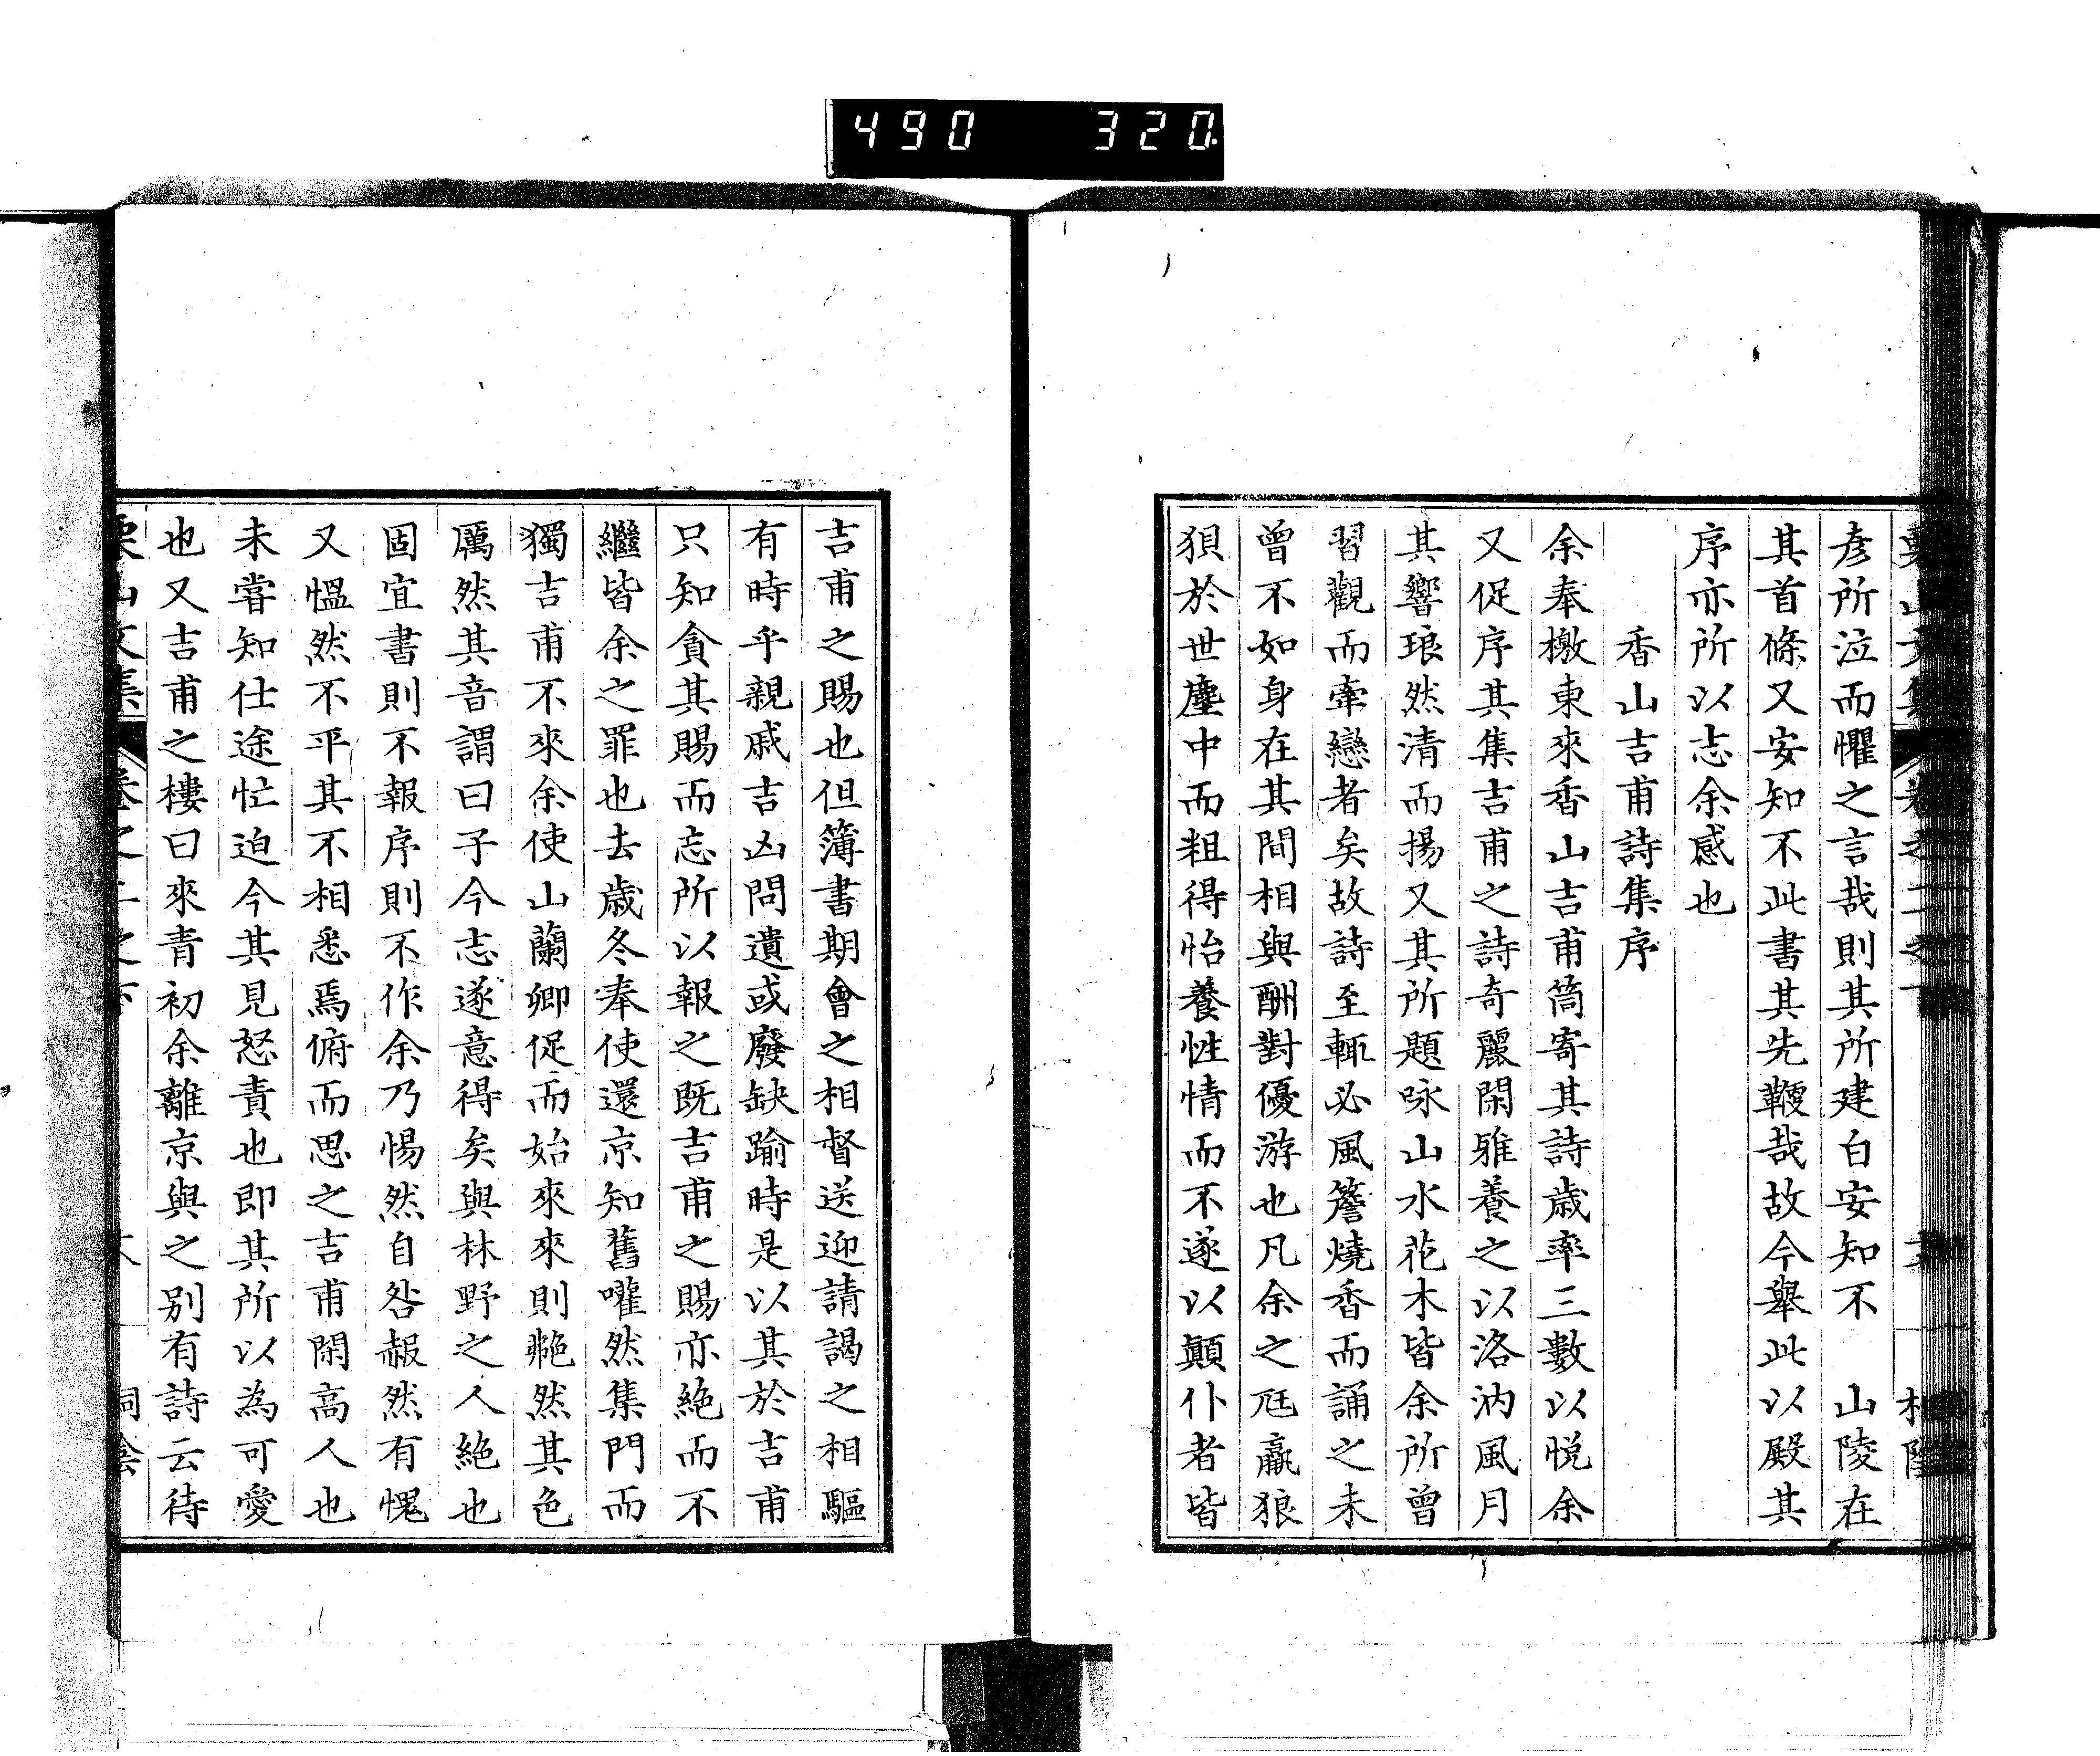 490 320
彦所泣而懼之言哉則其所建白安知不 山陵在
其首條又安知不此書其先鞭哉故今舉此以殿其
序亦所以志余感也
香山吉甫詩集序
余奉檄東來香山吉甫筒寄其詩歳率三數以悦余
又促序其集吉甫之詩奇麗閑雅養之以洛汭風月
其響琅然清而揚又其所題咏山水花木皆余所曾
習觀而牽戀者矣故詩至輒必風簷燒香而誦之未
曾不如身在其間相與酬對優游也凡余之尫羸狼
狽於世塵中而粗得怡養性情而不遂以顛仆者皆
吉甫之賜也但簿書期會之相督送迎請謁之相驅
有時乎親戚吉凶問遺或廢缺踰時是以其於吉甫
只知貪其賜而忘所以報之既吉甫之賜亦絶而不
繼皆余之罪也去歳冬奉使還京知舊嚾然集門而
獨吉甫不來余使山蘭卿促而始來來則艴然其色
厲然其音謂曰子今志遂意得矣與林野之人絶也
固宜書則不報序則不作余乃惕然自咎赧然有愧
又慍然不平其不相悉焉俯而思之吉甫閑高人也
未嘗知仕途忙迫今其見怒責也即其所以為可愛
也又吉甫之樓曰來青初余離京與之別有詩云待
栗山文集 卷之二之下